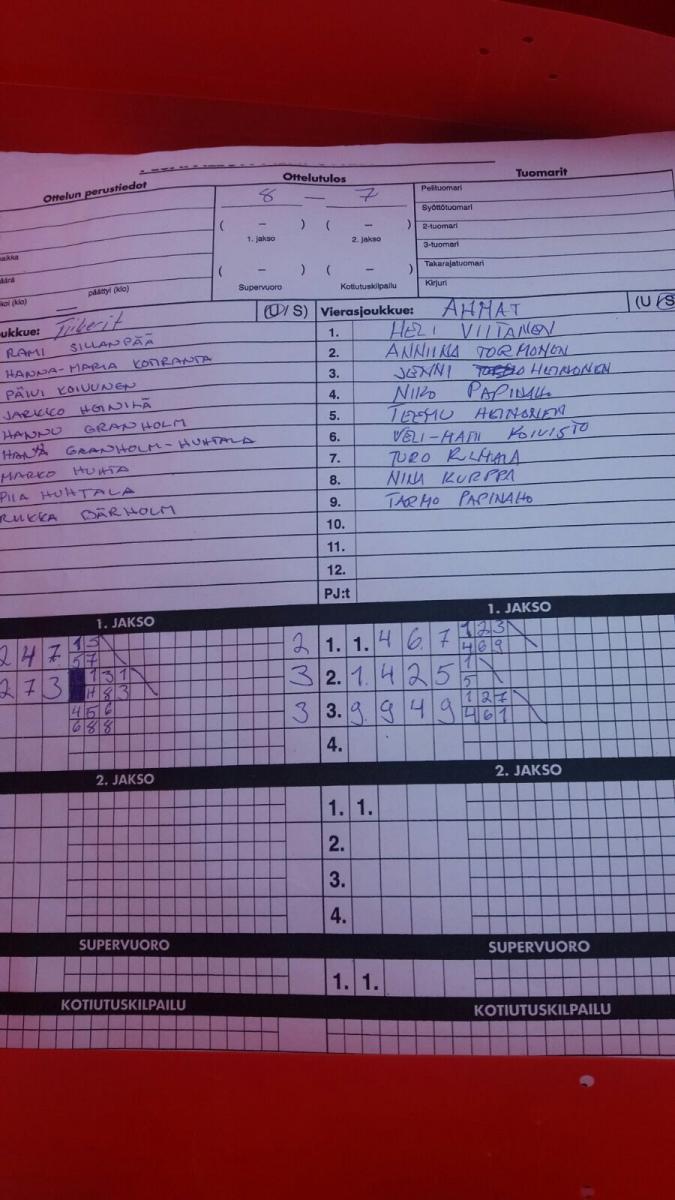 Ottelun perustiedot
Ottelutulos
Tuomarit
8 — 7
Pelituomari
Syöttötuomari
( – ) ( – )
2-tuomari
1. jakso 2. jakso
3-tuomari
( – ) ( – )
Takarajatuomari
päättyi (klo)
Supervuoro Kotiutuskilpailu
Kirjuri
ukkue: Tiikerit (U / S)
Vierasjoukkue: AHMAT (U / S
RAMI SILLANPÄÄ
1. HELI VIITANEN
HANNA-MARIA KOTIRANTA
2. ANNIINA TORMONEN
PÄIVI KOIVUNEN
3. JENNI HEINONEN
JARKKO HEINILÄ
4. NIKO PAPINAHO
HANNU GRANHOLM
5. TEEMU HEINONEN
GRANHOLM-HUHTALA
6. VELI-MATTI KOIVISTO
MARKO HUHTA
7. TURO
PIIA HUHTALA
8. NINA KURPPA
RIIKKA BÄRHOLM
9. TARMO PAPINAHO
10.
11.
12.
PJ:t
1. JAKSO
1. JAKSO
2 4 7 1 5
5 7
2 1. 1. 4 6 7 1 2 3
4 6 9
2 7 3 1 3 1
4 8 3
3 2. 1. 4 2 5 1
5
4 5 6
6 8 8
3 3. 9 9 4 9 1 2 7
4 6 1
4.
2. JAKSO
2. JAKSO
1. 1.
2.
3.
4.
SUPERVUORO
SUPERVUORO
1. 1.
KOTIUTUSKILPAILU
KOTIUTUSKILPAILU